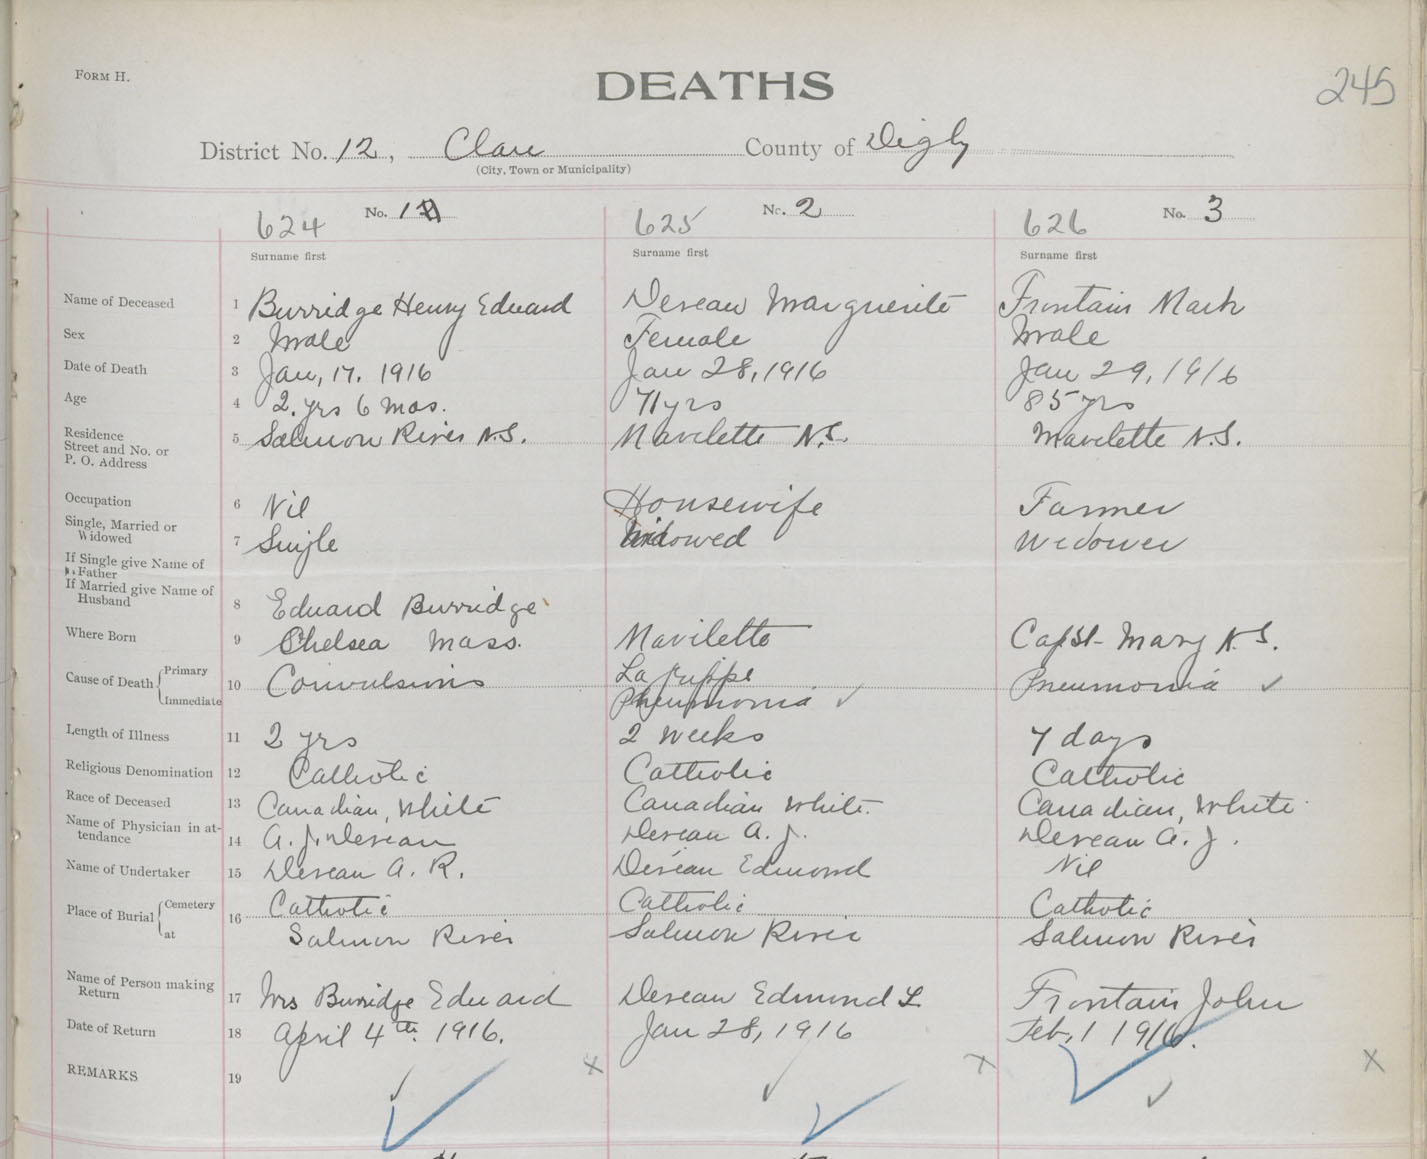 FORM H.
DEATHS
245
District No. 12, Clare County of Digby
(City, Town or Municipality)
624 No. 1
625 No. 2
626 No. 3
Surname first Surname first Surname first
Name of Deceased 1 Burridge Henry Edward Deveau Marguerite Frontain Mark
Sex 2 Male Female Male
Date of Death 3 Jan, 17. 1916 Jan 28, 1916 Jan 29, 1916
Age 4 2. yrs 6 mos. 71 yrs 85 yrs
Residence
Street and No. or 5 Salmon River N.S. Mavilette N.S. Mavilette N.S.
P. O. Address
Occupation 6 Nil Housewife Farmer
Single, Married or
Widowed 7 Single Widowed Widower
If Single give Name of
Father
If Married give Name of
Husband 8 Edward Burridge
Where Born 9 Chelsea Mass. Mavilette Cap St. Mary N.S.
Cause of Death { Primary La Grippe
Immediate 10 Convulsions Pneumonia ✓ Pneumonia ✓
Length of Illness 11 2 yrs 2 weeks 7 days
Religious Denomination 12 Catholic Catholic Catholic
Race of Deceased 13 Canadian, White Canadian White. Canadian, White
Name of Physician in at-
tendance 14 A. J. Deveau Deveau A. J. Deveau A. J.
Name of Undertaker 15 Deveau A. R. Deveau Edmond Nil
Place of Burial { Cemetery 16 Catholic Catholic Catholic
at Salmon River Salmon River Salmon River
Name of Person making
Return 17 Mrs Burridge Edward Deveau Edmond L. Frontain John
Date of Return 18 April 4th. 1916. Jan 28, 1916 Feb, 1 1916.
REMARKS 19 ✓ x ✓ x ✓ x